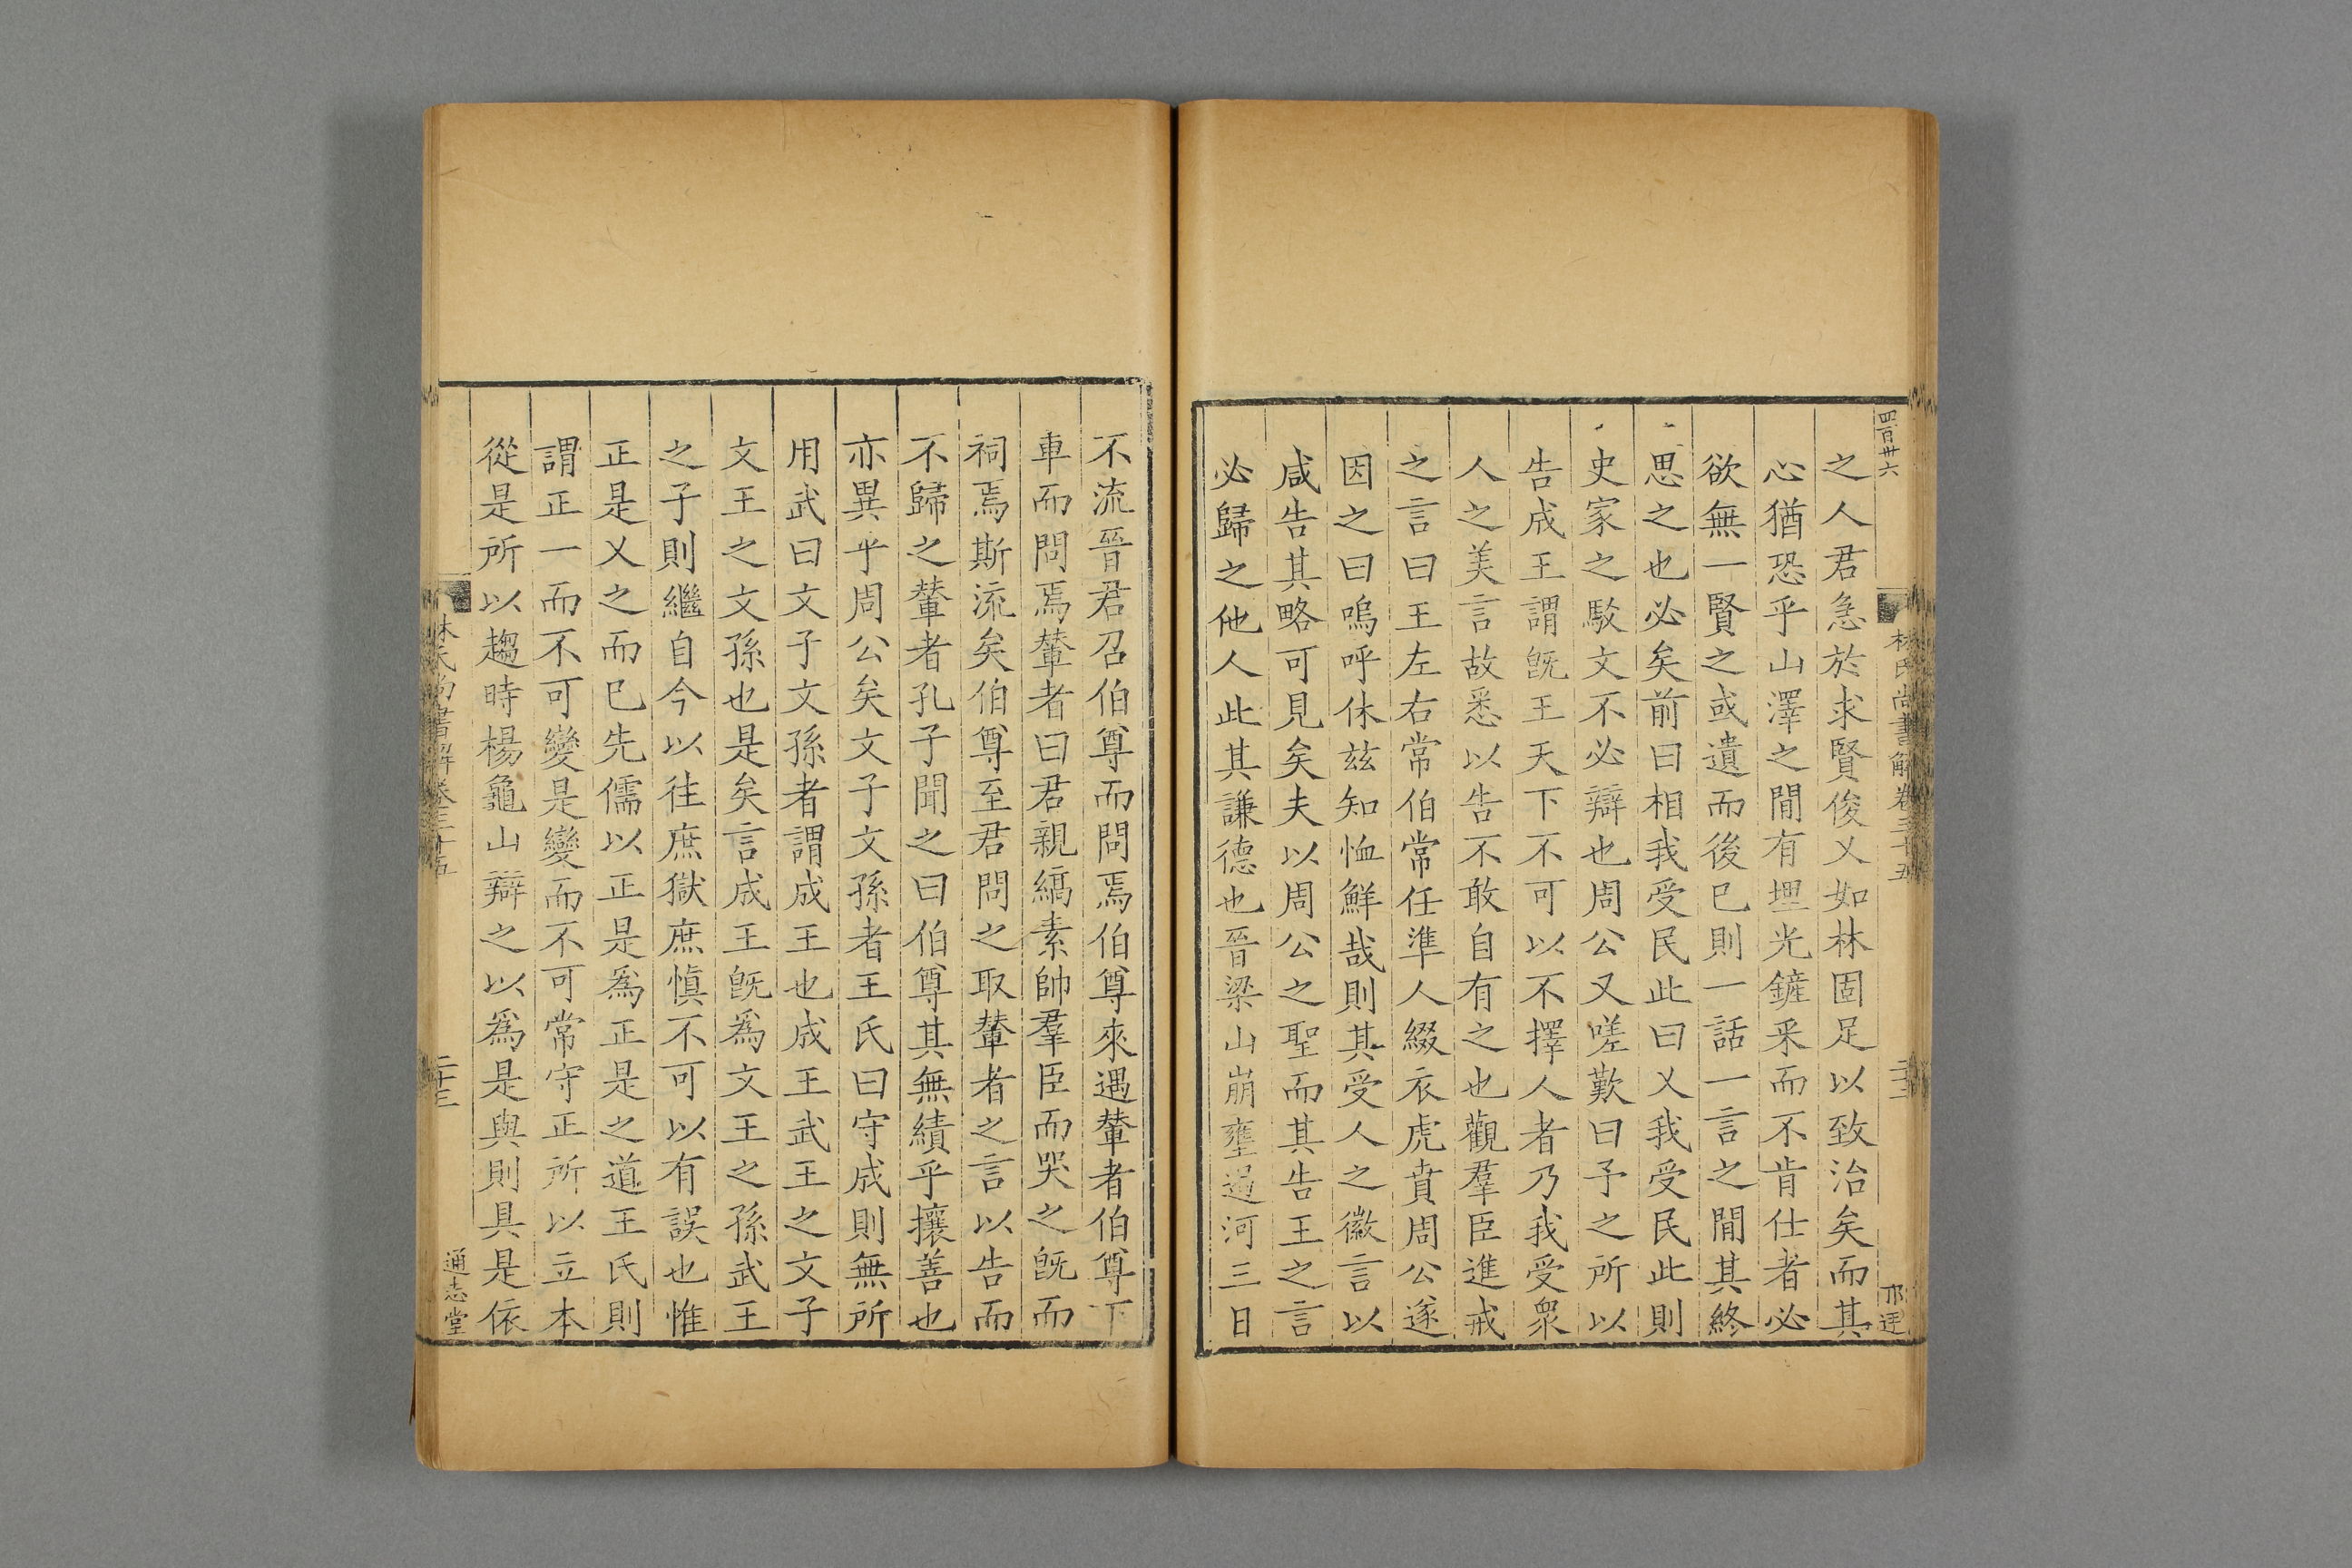 四百廿六
林氏尚書解卷三十五
之人君急於求賢俊乂如林固足以致治矣而其
心猶恐乎山澤之間有埋光鏟釆而不肯仕者必
欲無一賢之或遺而後已則一話一言之間其終
思之也必矣前曰相我受民此曰乂我受民此則
史家之駁文不必辯也周公又嗟歎曰予之所以
告成王謂旣王天下不可以不擇人者乃我受衆
人之美言故悉以告不敢自有之也觀羣臣進戒
之言曰王左右常伯常任準人綴衣虎賁周公遂
因之曰嗚呼休兹知恤鮮哉則其受人之徽言以
咸告其略可見矣夫以周公之聖而其告王之言
必歸之他人此其謙德也晉梁山崩壅遏河三日
不流晉君召伯尊而問焉伯尊來遇輦者伯尊下
車而問焉輦者曰君親縞素帥羣臣而哭之旣而
祠焉斯流矣伯尊至君問之取輦者之言以告而
不歸之輦者孔子聞之曰伯尊其無績乎攘善也
亦異乎周公矣文子文孫者王氏曰守成則無所
用武曰文子文孫者謂成王也成王武王之文子
文王之文孫也是矣言成王旣爲文王之孫武王
之子則繼自今以往庶獄庶愼不可以有誤也惟
正是乂之而已先儒以正是爲正是之道王氏則
謂正一而不可變是變而不可常守正所以立本
從是所以趨時楊龜山辯之以爲是與則具是依
林氏尚書解卷三十五
二十三
通志堂